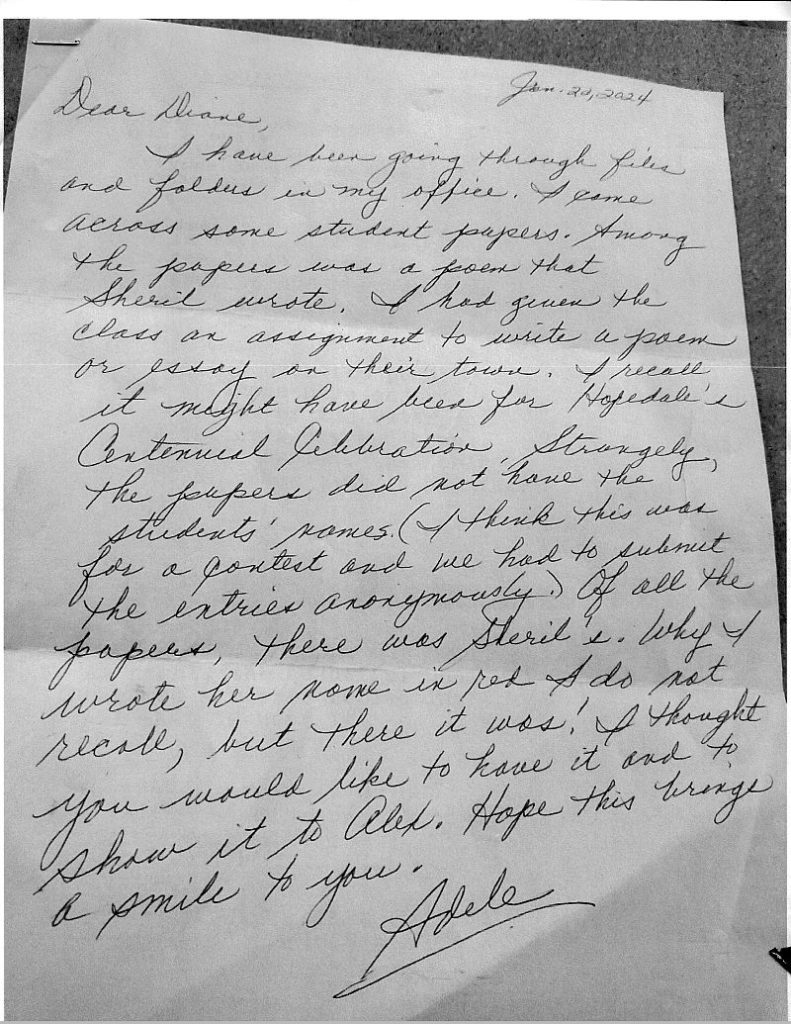 Jan. 20, 2024
Dear Diane,
I have been going through files
and folders in my office. I came
across some student papers. Among
the papers was a poem that
Sheril wrote. I had given the
class an assignment to write a poem
or essay on their town. I recall
it might have been for Hopedale's
Centennial Celebration. Strangely,
the papers did not have the
students' names. (I think this was
for a contest and we had to submit
the entries anonymously.) Of all the
papers, there was Sheril's. Why I
wrote her name in red I do not
recall, but there it was! I thought
you would like to have it and to
show it to Alex. Hope this brings
a smile to you.
Adele